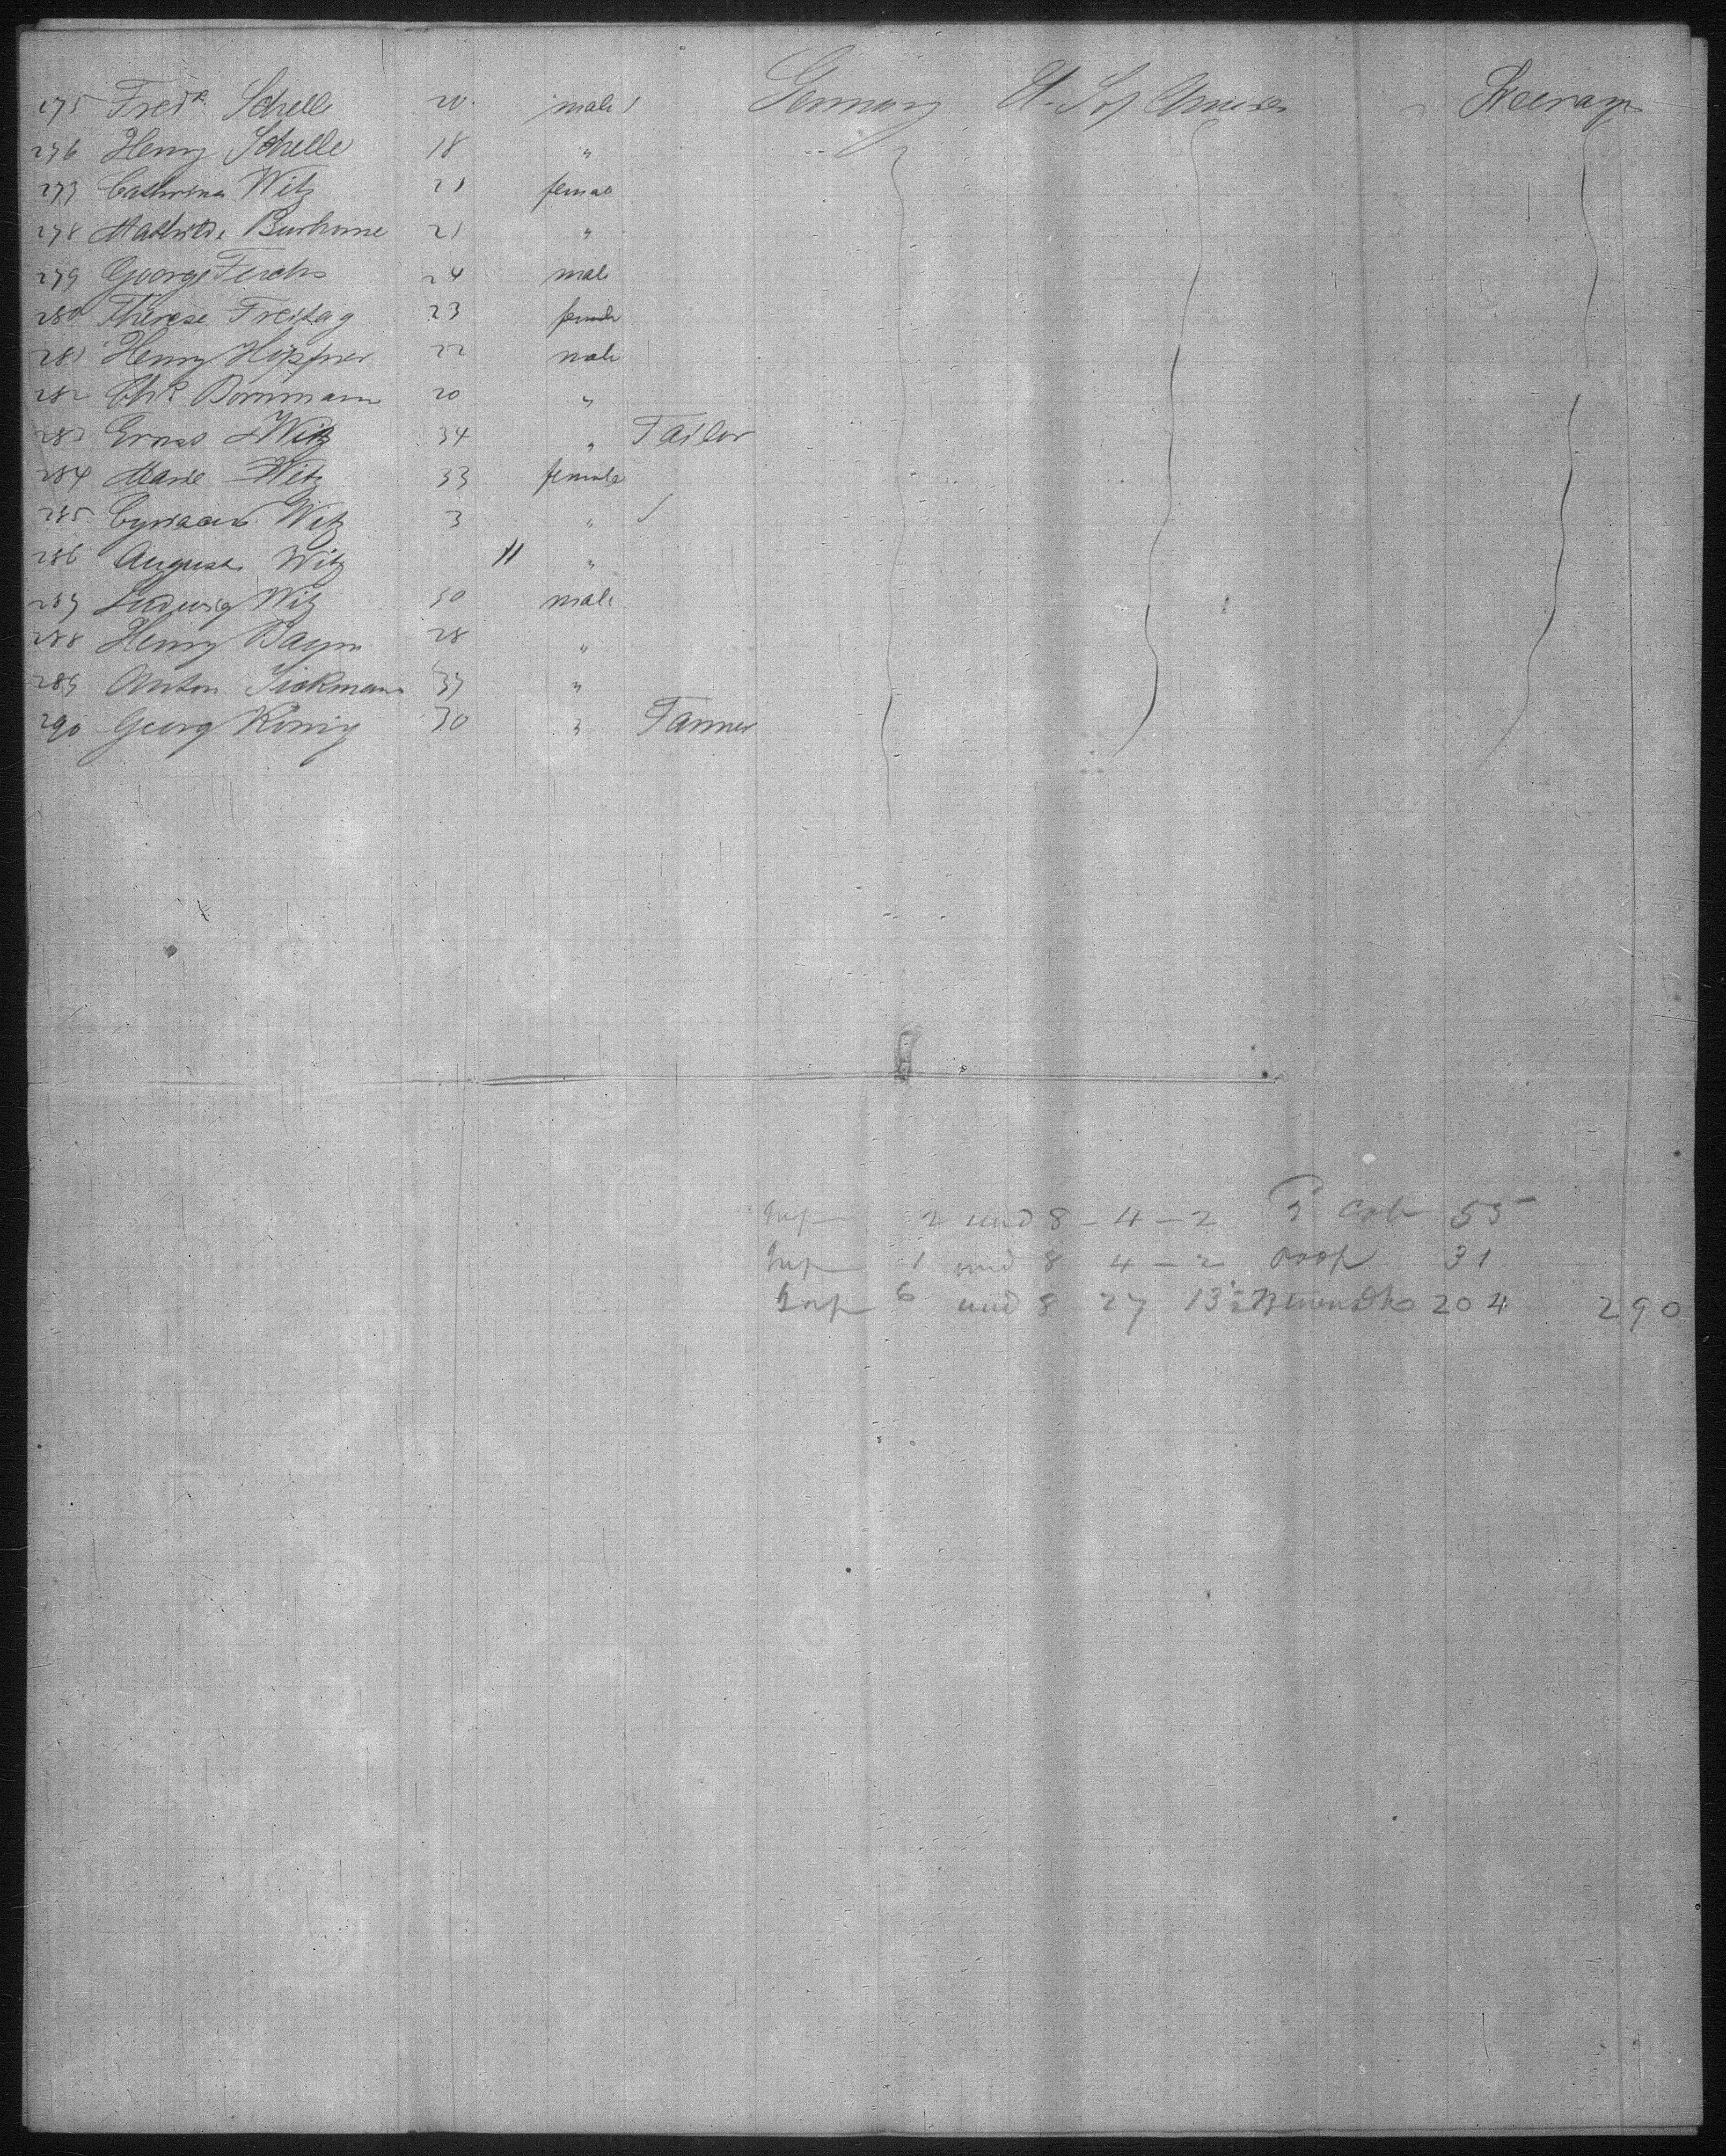 275 Fredk. Schelle 20. male Germany U. S. of America Steerage
276 Henry Schelle 18 "
277 Cathrina Witz 21 female
278 Mathilde 21 "
279 George Fuchs 24 male
280 Therese Freitag 23 female
281 Henry Höpfner 22 male
282 Chr. Bornmann 20 "
283 Ernst Witz 34 " Tailor
284 Marie Witz 33 female
285 Witz 3 "
286 August Witz 11 "
287 Ludwig Witz 30 male
288 Henry 28 "
289 Anton 37 "
290 Georg König 30 " Farmer
Inf 2 und 8 - 4 - 2 55
Inf 1 und 8 4 - 2 31
Inf 6 und 8 27 13 204 290